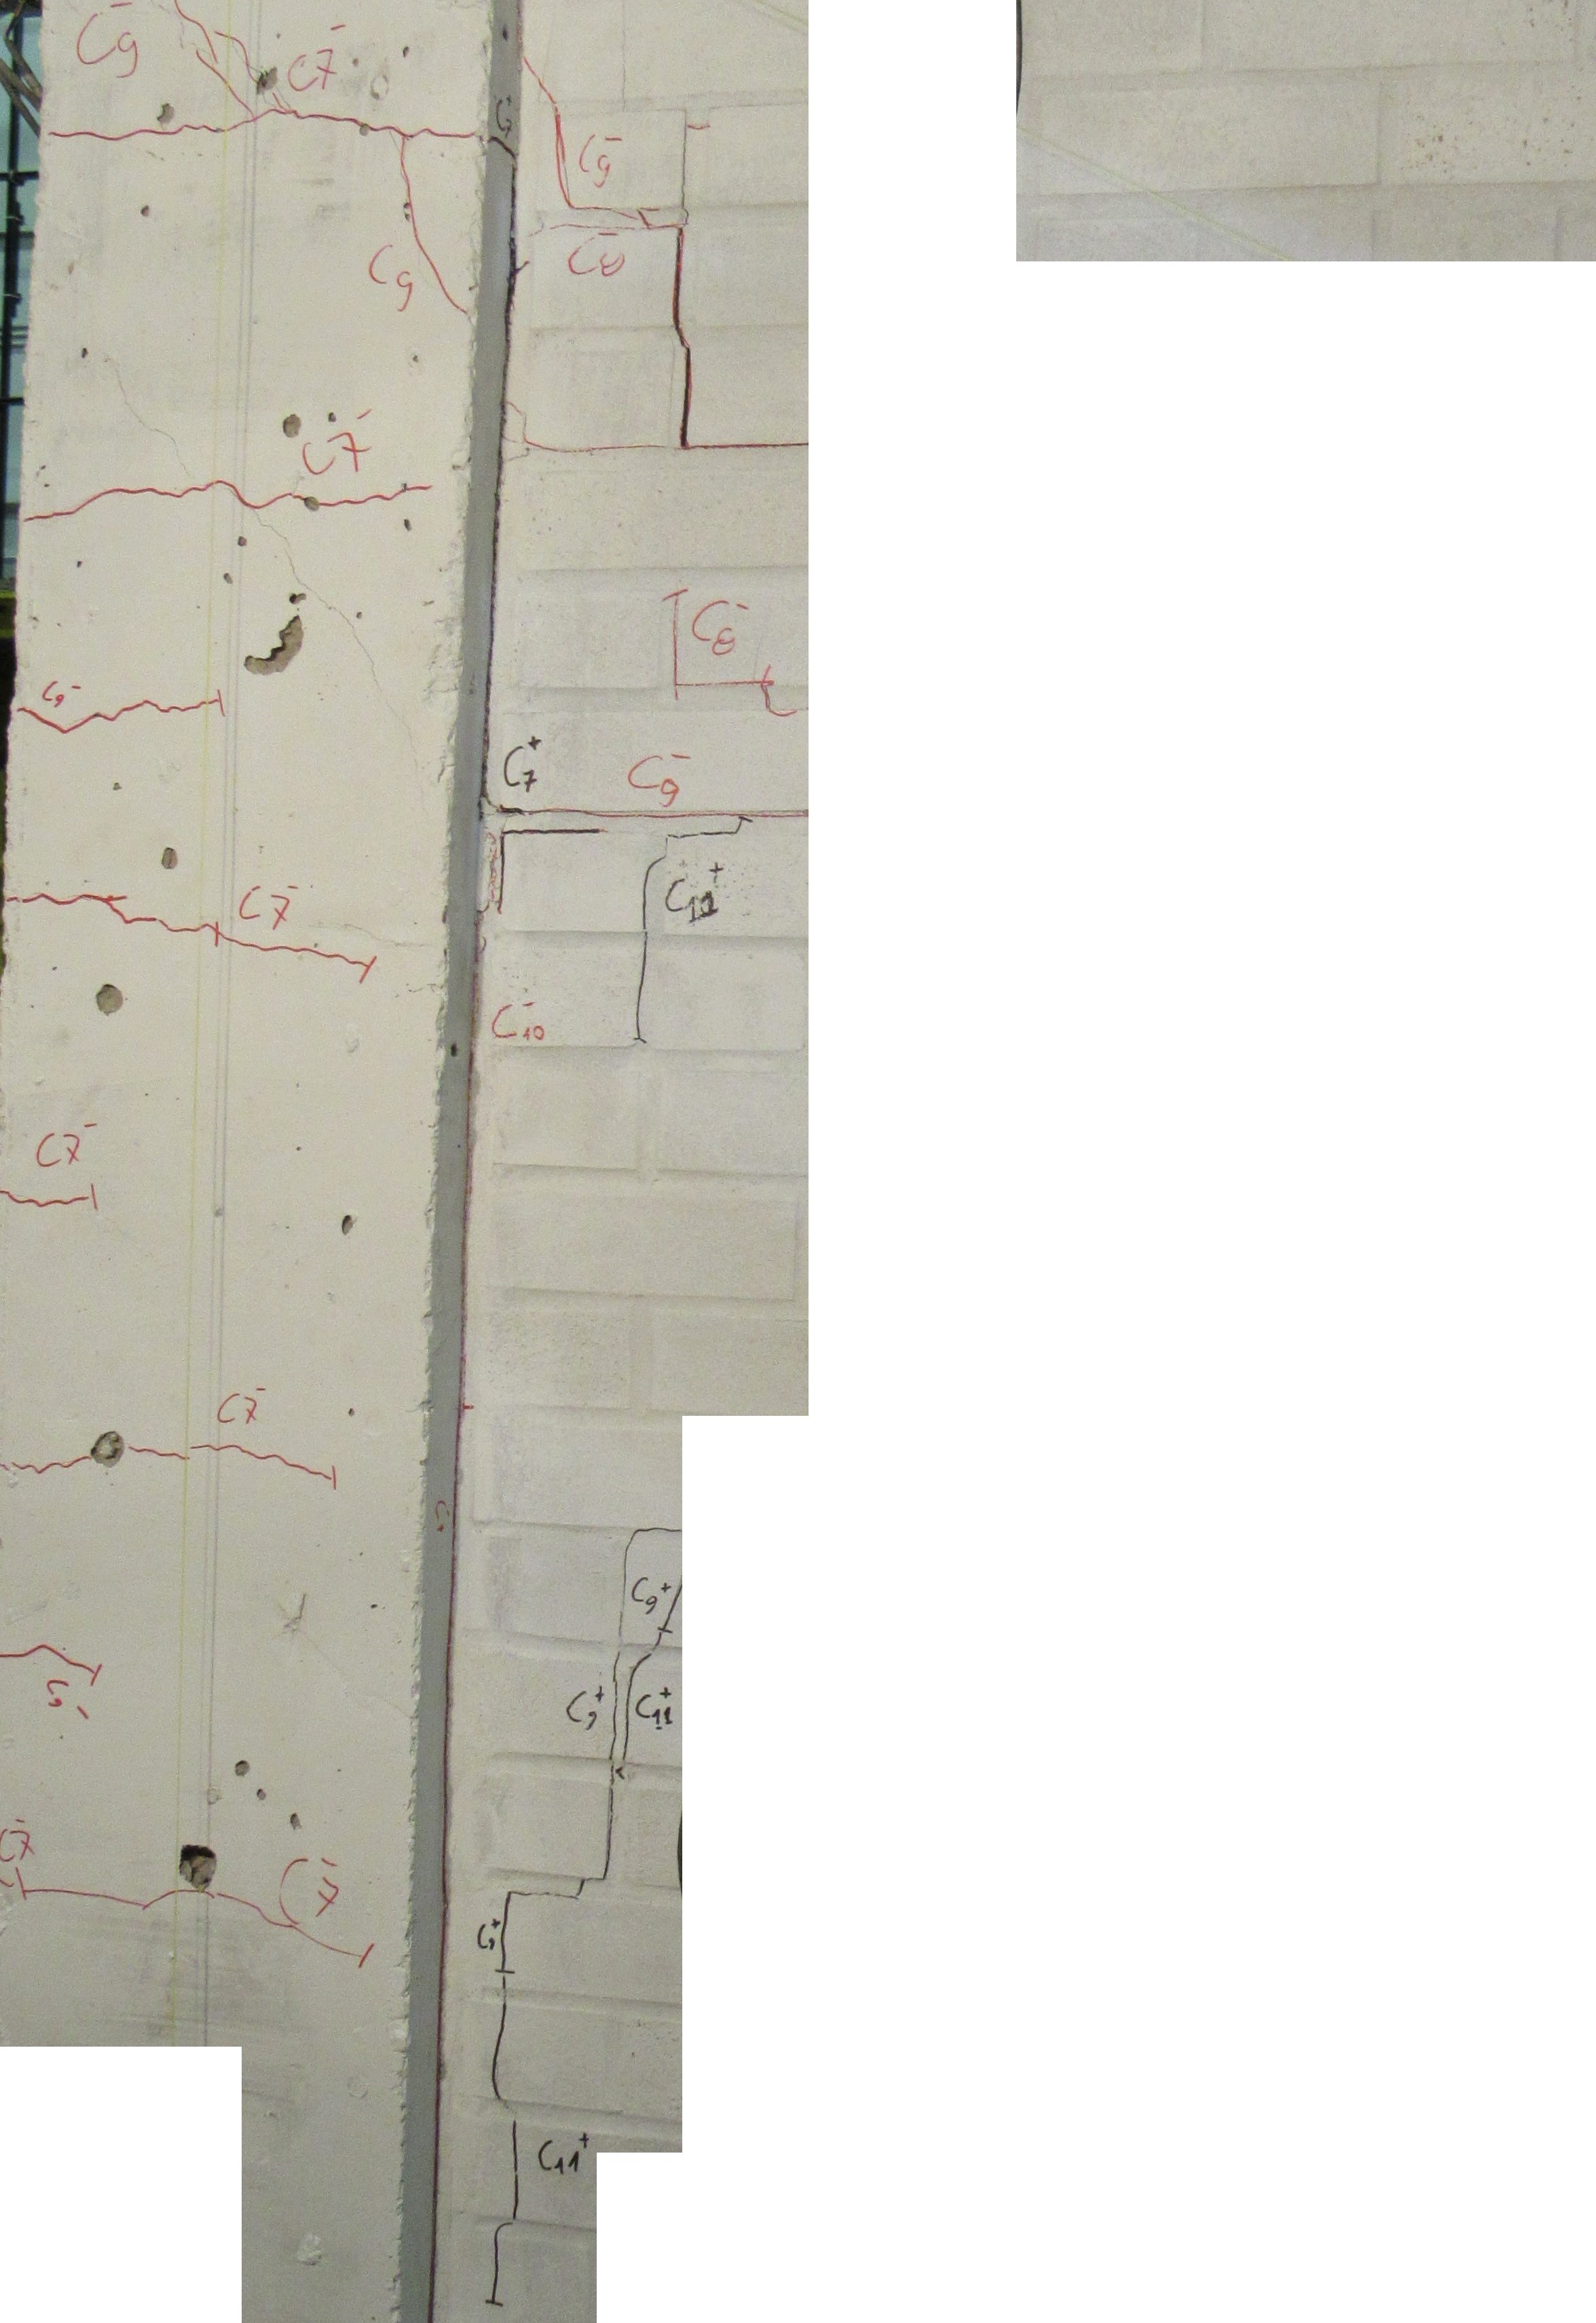 C9-
C7-
C9-
C8-
C9
C7-
C8-
C9-
C7+
C9-
C7-
C11+
C10-
C7-
C7-
C9+
C9+
C11+
C7-
C7-
C11+